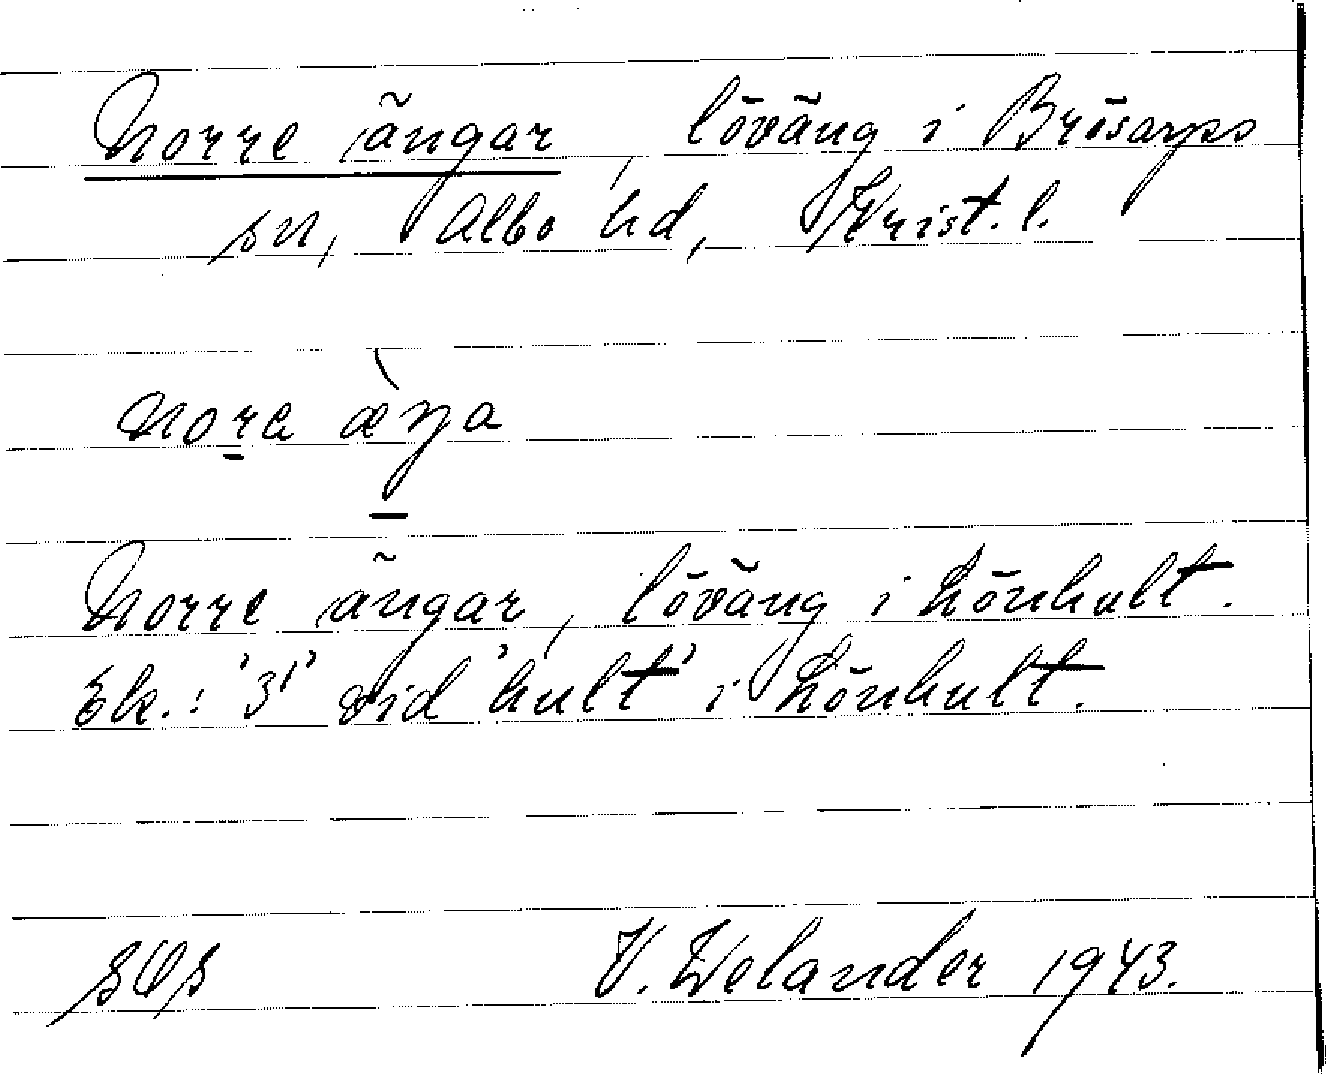 Norre ängar, löväng i Brösarps
sn, Albo hd, Krist. l.
nora æŋa
Norre ängar, löväng i Lönhult.
Ek.: '31' vid 'hult' i Lönhult.
V. Welander 1943.